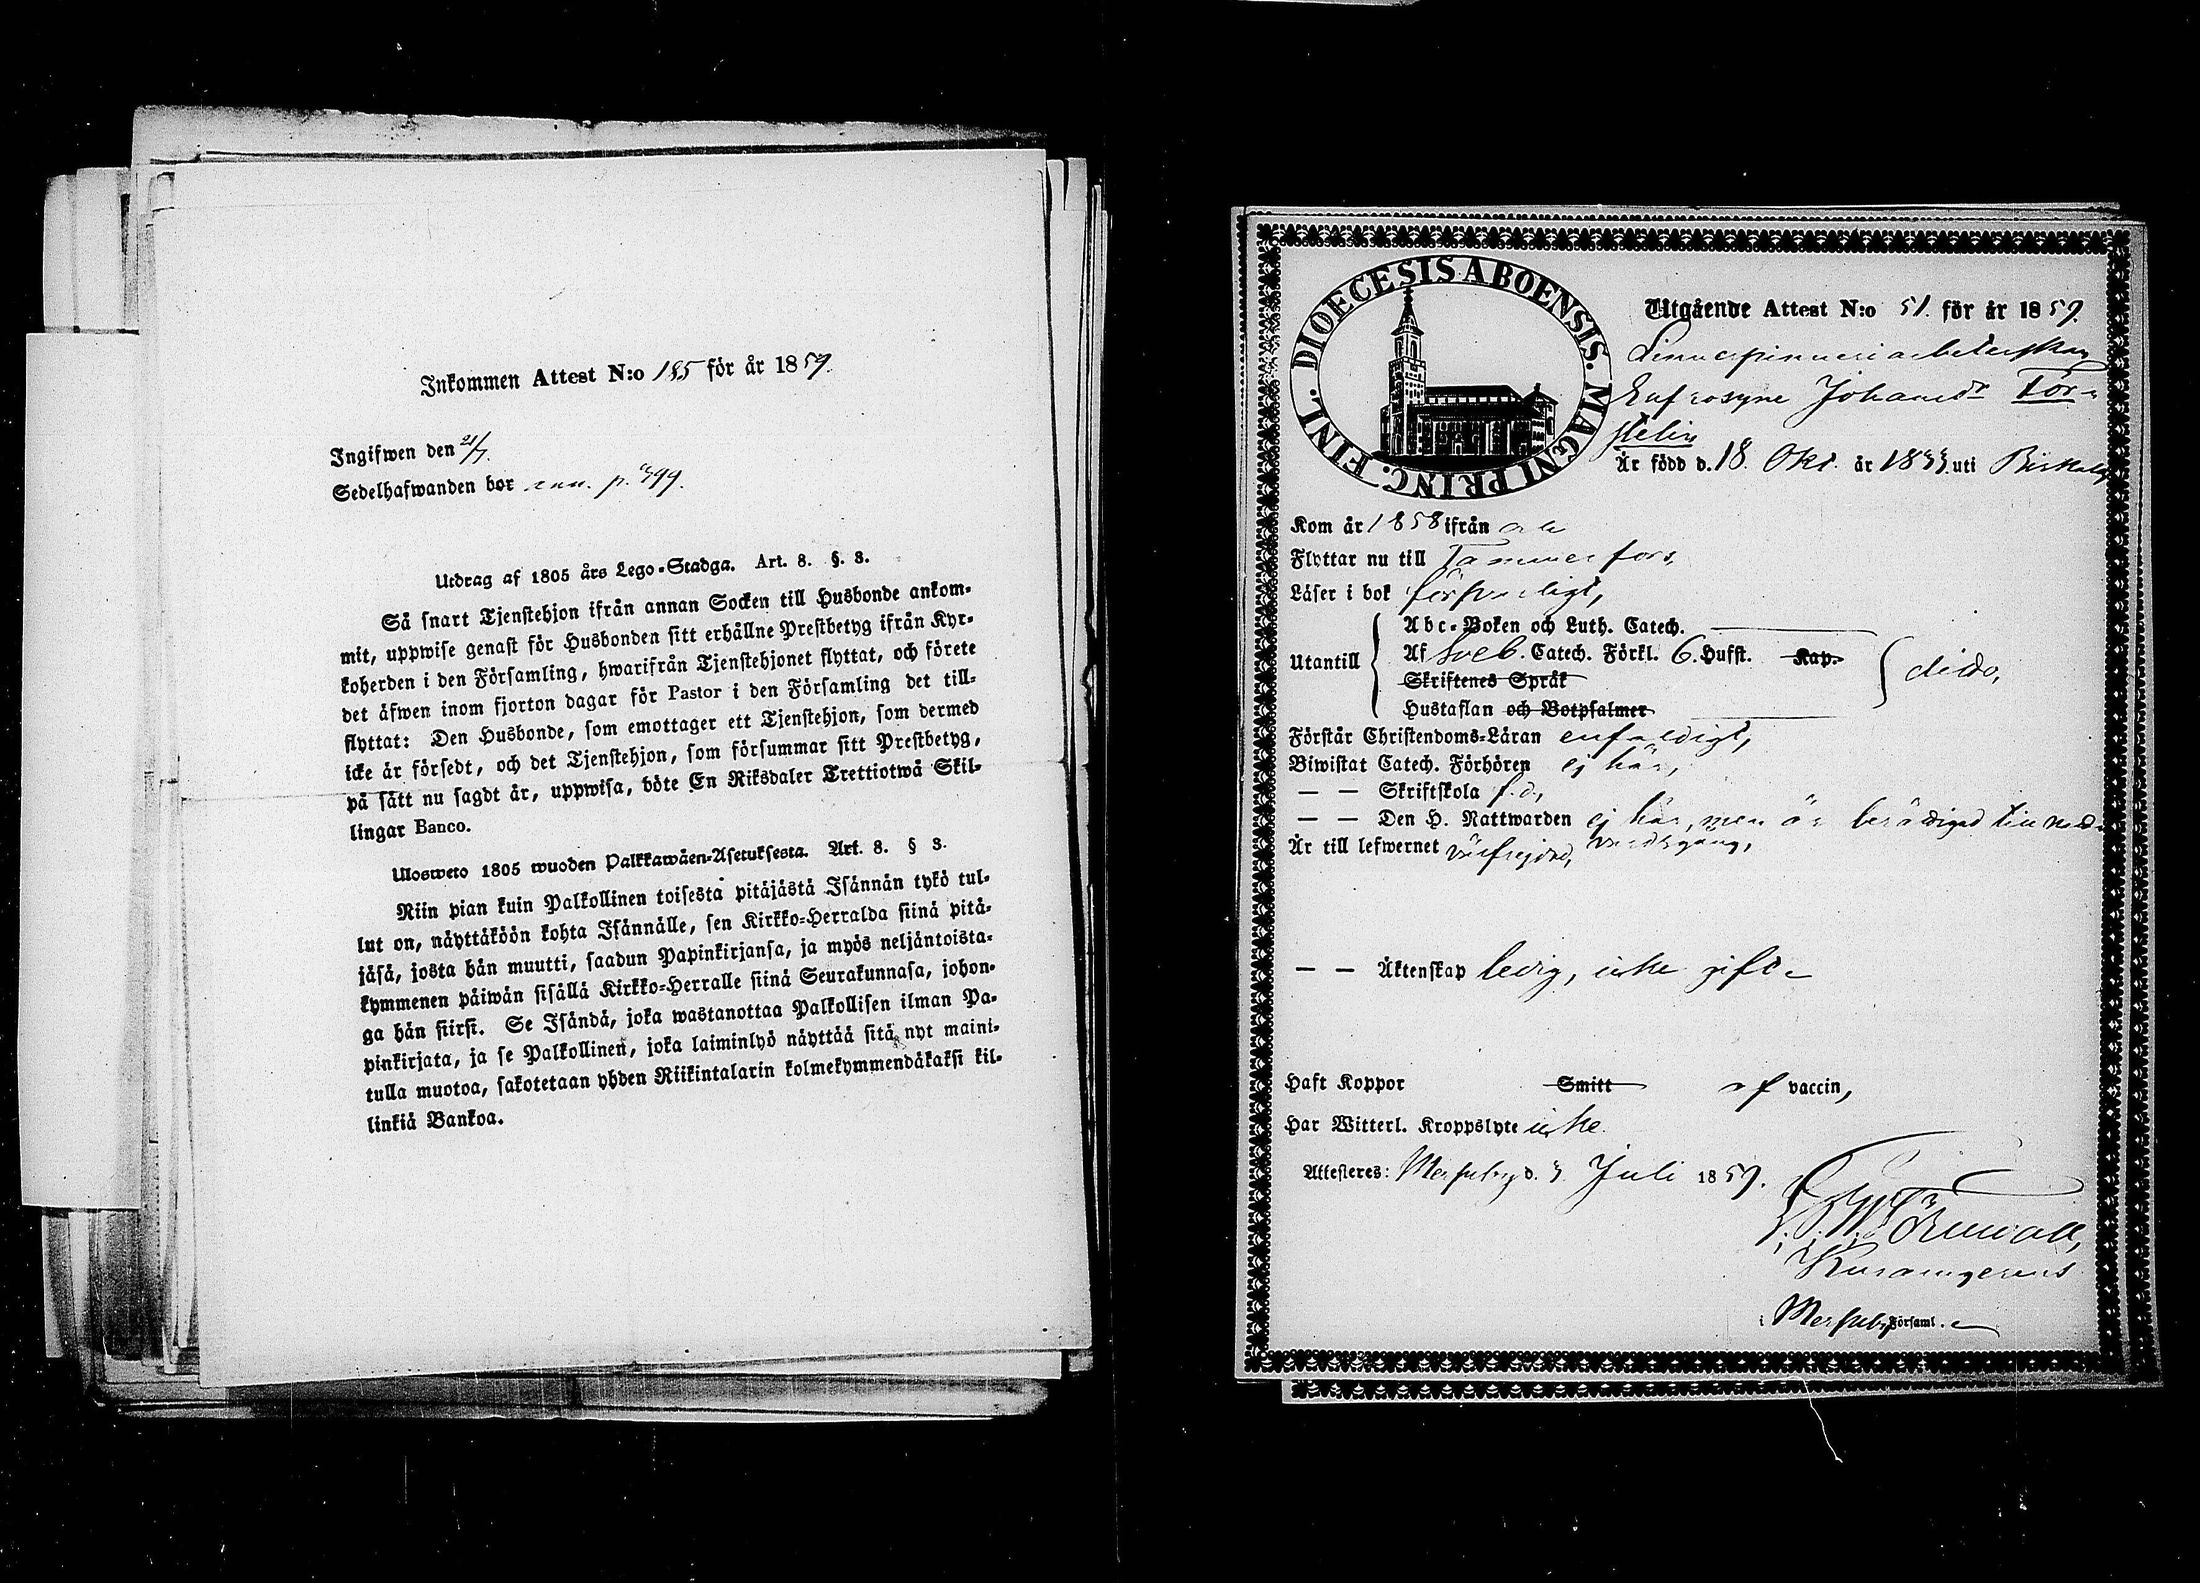 Inkommen Attest N:o 185 för år 1859.
Ingifwen den 21/7.
Sedelhafwanden bor ann. p. 399.
Utdrag af 1805 års Lego-Stadga. Art. 8. §. 8.
Så snart Tjenstehjon ifrån annan Socken till Husbonde ankom-
mit, uppwise genast för Husbonden sitt erhållne Prestbetyg ifrån Kyr-
koherden i den Församling, hwarifrån Tjenstehjonet flyttat, och förete
det äfwen inom fjorton dagar för Pastor i den Församling det till-
flyttat: Den Husbonde, som emottager ett Tjenstehjon, som dermed
icke är försedt, och det Tjenstehjon, som försummar sitt Prestbetyg,
på sätt nu sagdt är, uppwisa, böte En Riksdaler Trettiotwå Skil-
lingar Banco.
Ulosweto 1805 wuoden Palkkawäen-Asetuksesta. Art. 8. § 3.
Niin pian kuin Palkollinen toisesta pitäjästä Isännän tykö tul-
lut on, näyttäköön kohta Isännälle, sen Kirkko-Herralda siinä pitä-
jäsä, josta hän muutti, saadun Papinkirjansa, ja myös neljäntoista-
kymmenen päiwän sisällä Kirkko-Herralle siinä Seurakunnasa, johon-
ga hän siirsi. Se Isändä, joka wastanottaa Palkollisen ilman Pa-
pinkirjata, ja se Palkollinen, joka laiminlyö näyttää sitä nyt maini-
tulla muotoa, sakotetaan yhden Riikintalarin kolmekymmendäkaksi kil-
linkiä Bankoa.
DIOECESIS ABOENSIS. MAGNI PRINC. FINL.
Utgående Attest N:o 51. för år 1859.
Linnespinneriarbeterskan
Eufrosyne Johansdr Tör-
stelin
Är född d. 18. Okt. år 1833. uti Birkala
Kom år 1858 ifrån
Flyttar nu till Tammerfors,
Läser i bok försvarligt,
Utantill
Abc-Boken och Luth. Catech.
Af Sveb. Catech. Förkl. 6. Hufst. Kap.
Skriftenes Språk
dido,
Hustaflan och Botpsalmer
Förstår Christendoms-Läran enfaldigt,
Biwistat Catech. Förhören ej här,
— — Skriftskola f.d.,
— — Den H. Nattwarden ej här, men är berättigad till natt-
vardsgång,
Är till lefwernet välfrejdad,
— — Äktenskap ledig, icke gift
Haft Koppor Smitt af vaccin,
Har Witterl. Kroppslyte icke.
Attesteres: Messuby d. 3 Juli 1859.
Törnwall,
i Messuby Församl.